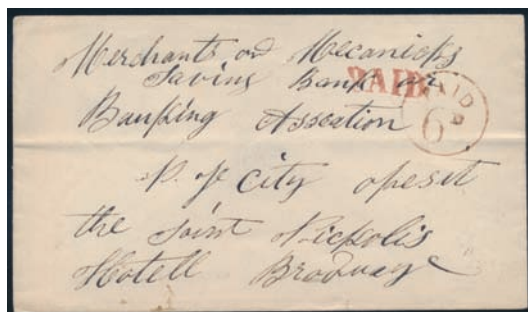 Merchants or Mecanicks
Saving Bank or PAID
Banking Asseation PAID 6
N. Y City opesit
the Saint Nickolis
Hotell Broduay